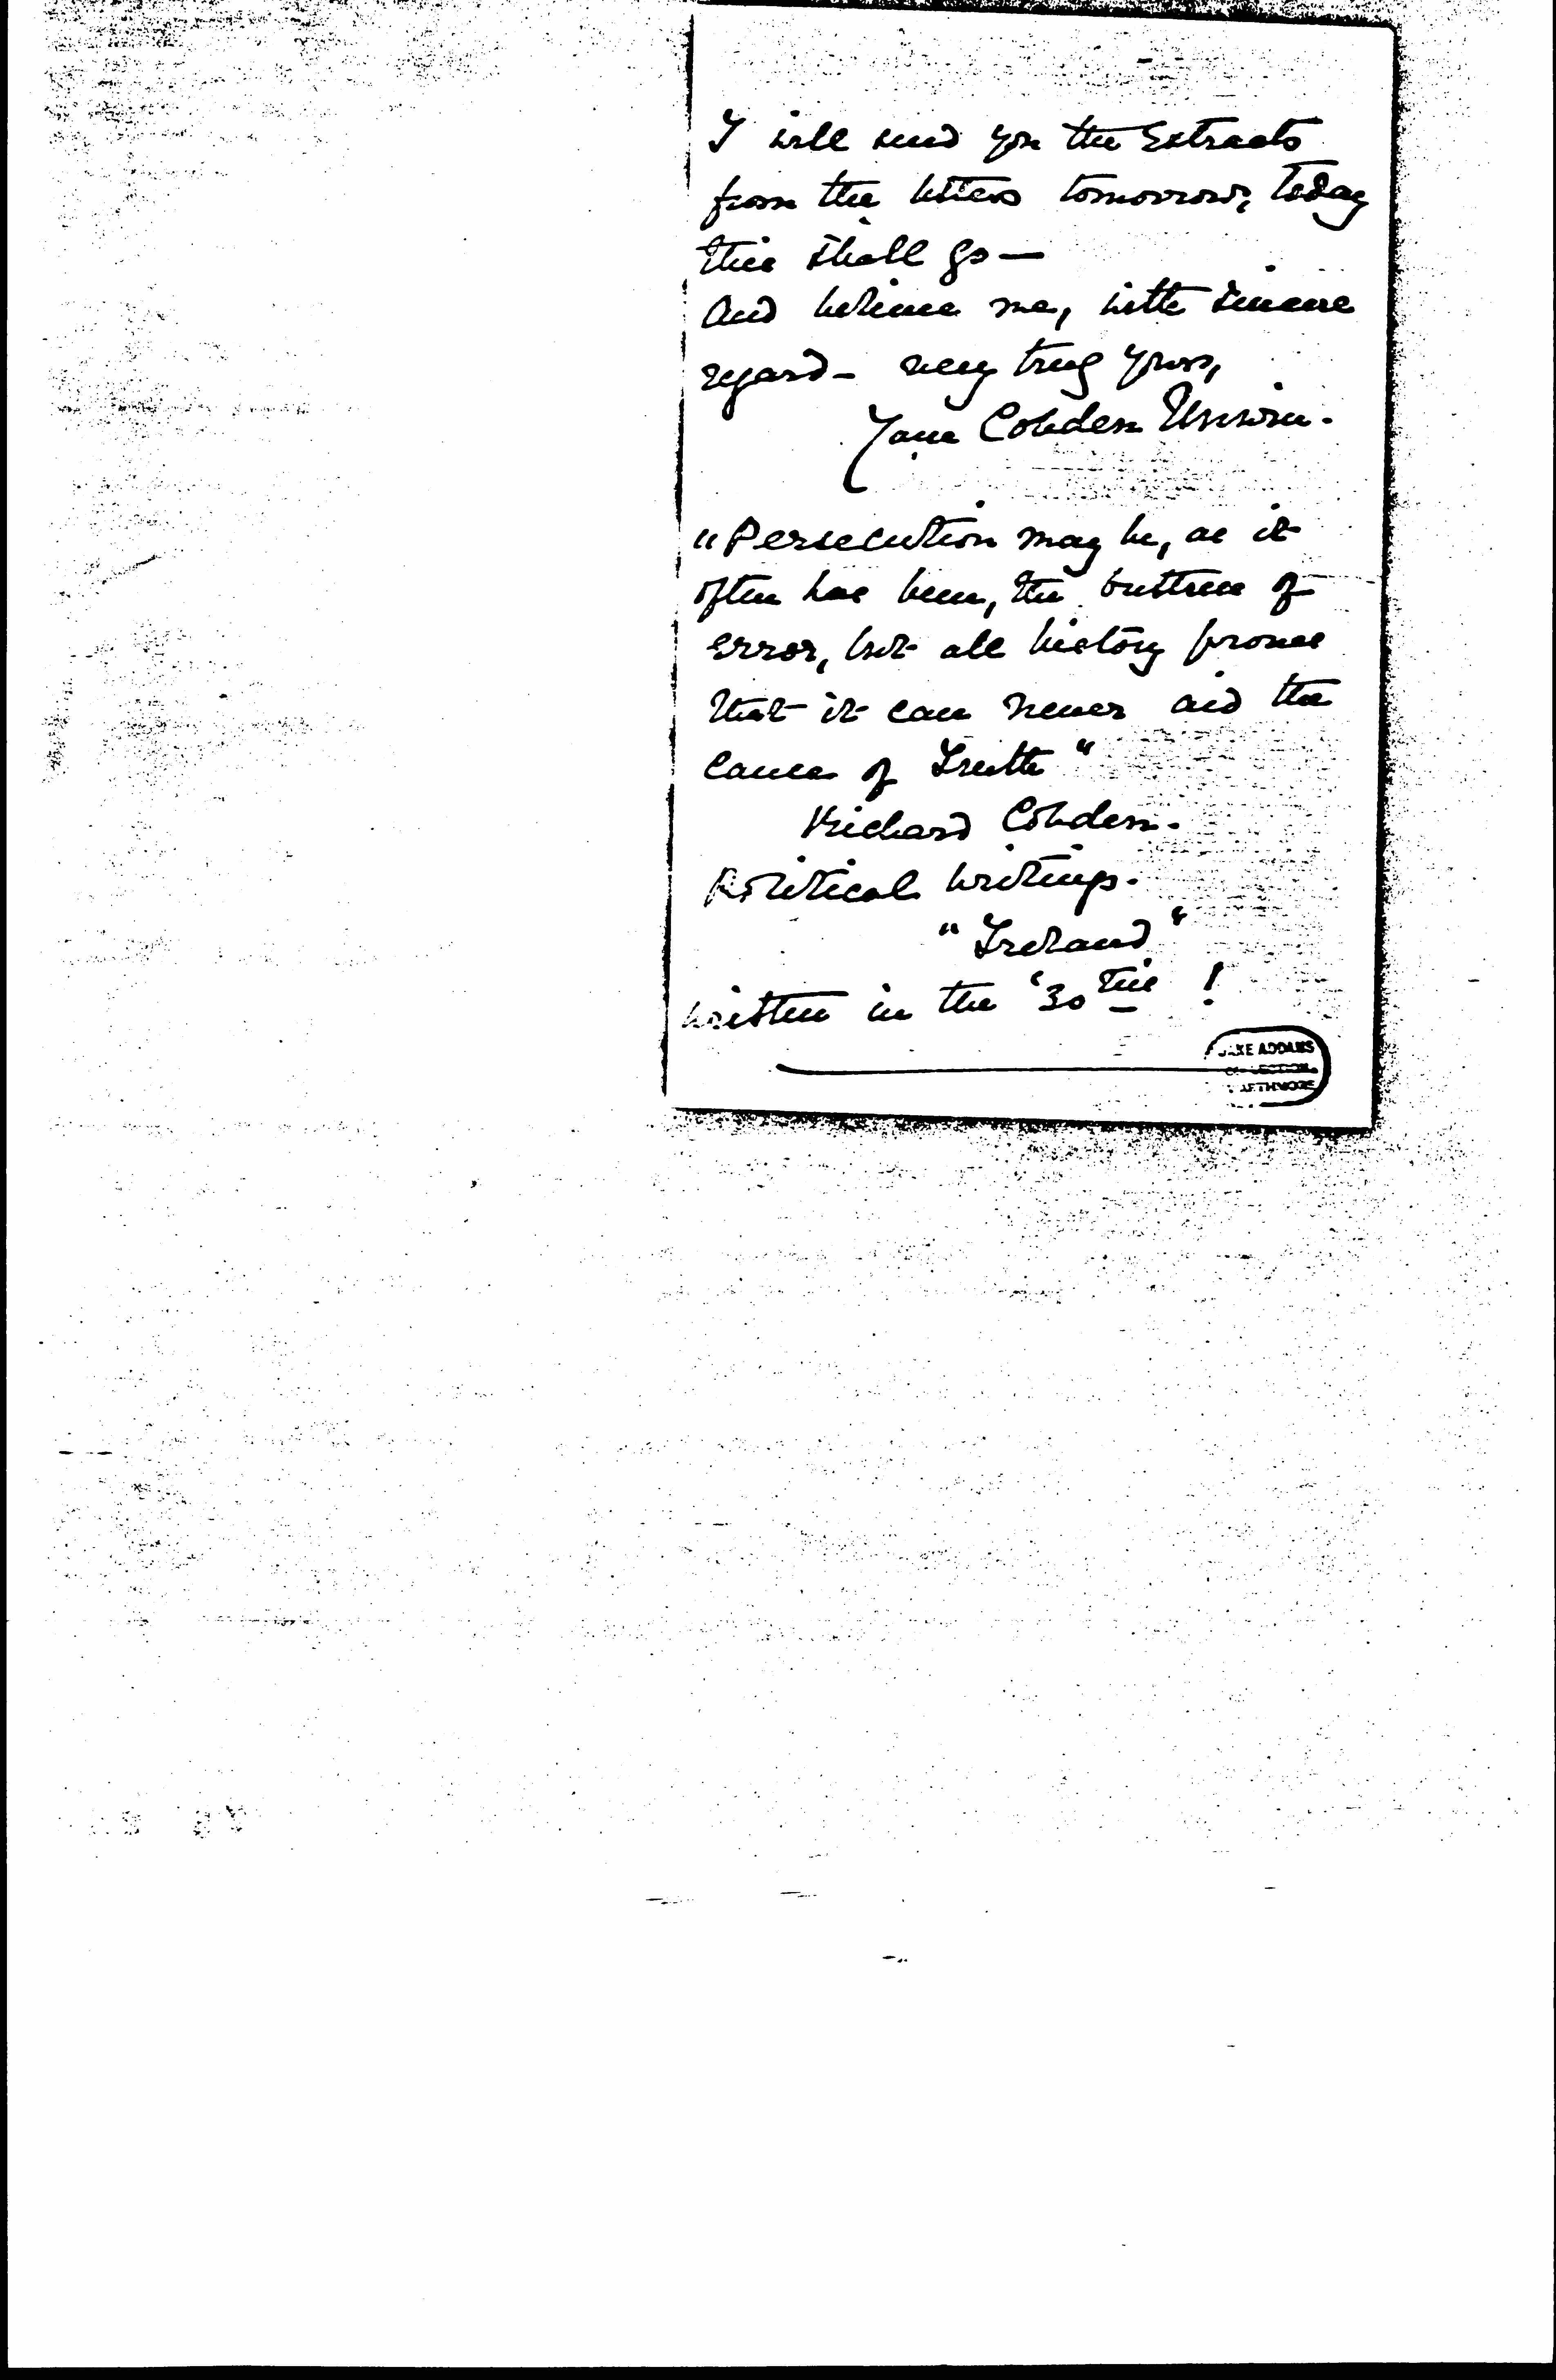 I will send you the Extracts
from the letters tomorrow, today
this shall go —
And believe me, with sincere
regard - very truly yours,
Jane Cobden Unwin.
"Persecution may be, as it
often has been, the buttress of
error, but all history proves
that it can never aid the
cause of Truth"
Richard Cobden.
Political Writings.
"Ireland"
written in the '30ties !
JANE ADDAMS
COLLECTION
SWARTHMORE